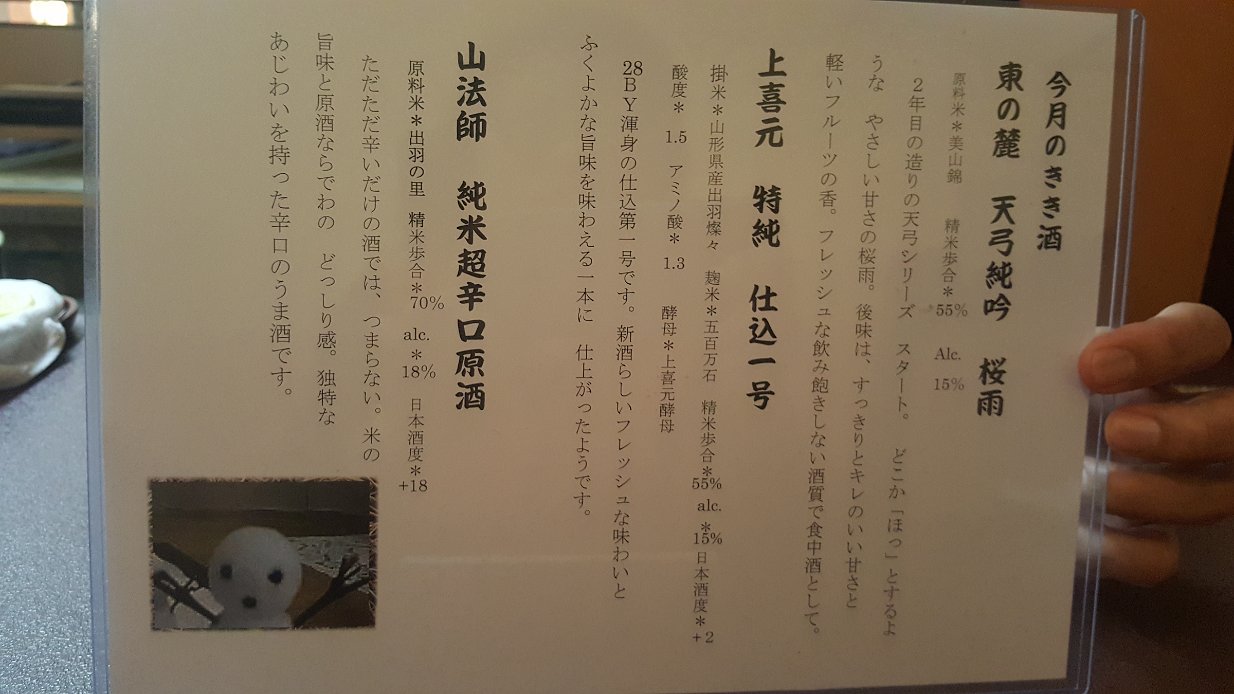 今月のきき酒
東の麓 天弓純吟 桜雨
原料米*美山錦 精米歩合*55% Alc. 15%
２年目の造りの天弓シリーズ スタート。 どこか「ほっ」とするよ
うな やさしい甘さの桜雨。後味は、すっきりとキレのいい甘さと
軽いフルーツの香。フレッシュな飲み飽きしない酒質で食中酒として。
上喜元 特純 仕込一号
掛米*山形県産出羽燦々 麹米*五百万石 精米歩合*55% alc.*15%日本酒度*+2
酸度* 1.5 アミノ酸* 1.3 酵母*上喜元酵母
28ＢＹ渾身の仕込第一号です。新酒らしいフレッシュな味わいと
ふくよかな旨味を味わえる一本に 仕上がったようです。
山法師 純米超辛口原酒
原料米*出羽の里 精米歩合*70% alc.*18% 日本酒度*+18
ただただ辛いだけの酒では、つまらない。米の
旨味と原酒ならでわの どっしり感。独特な
あじわいを持った辛口のうま酒です。